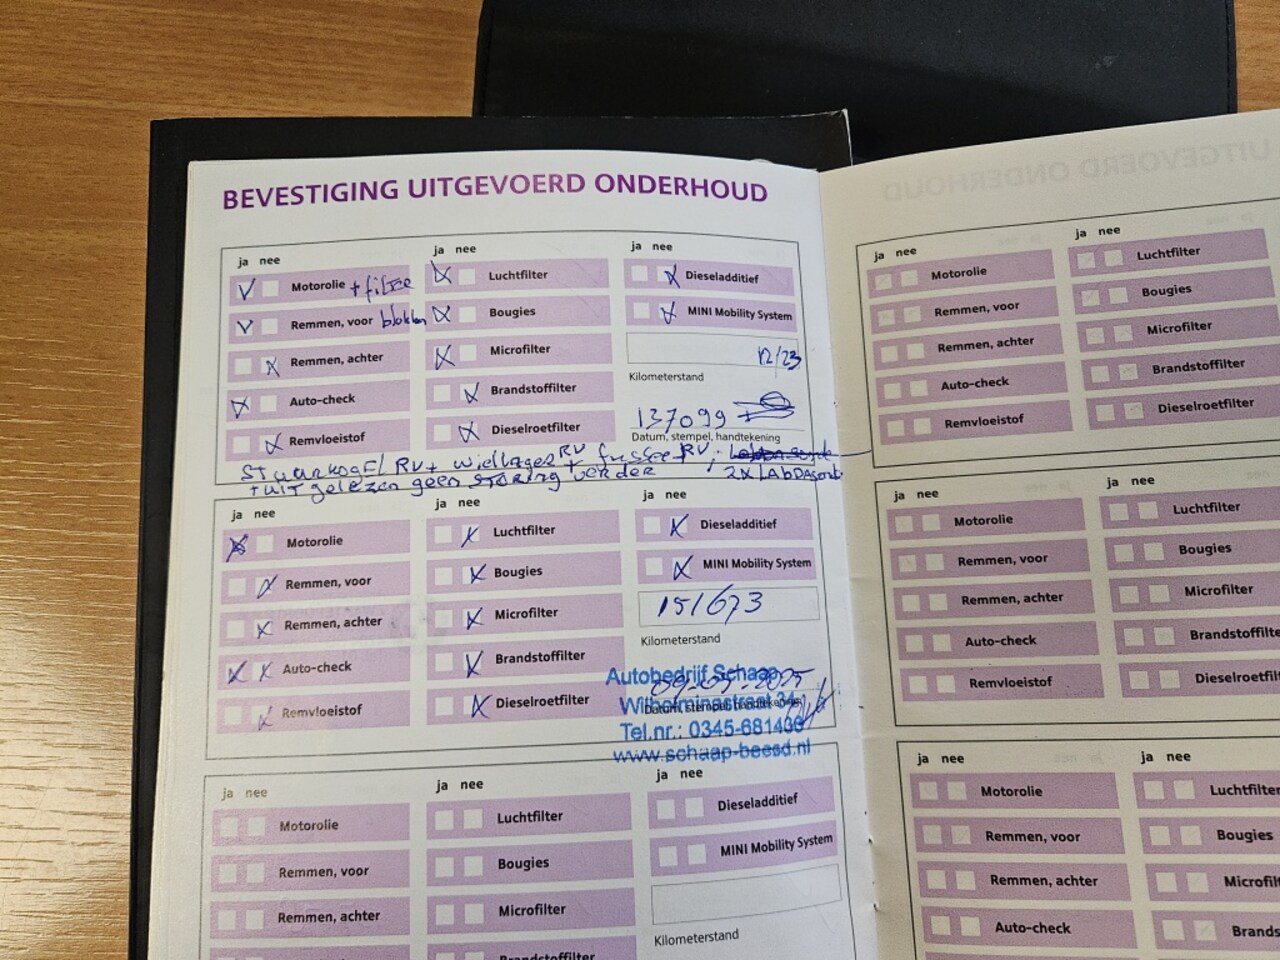 BEVESTIGING UITGEVOERD ONDERHOUD
ja nee
Motorolie + filter
Remmen, voor blokken
Remmen, achter
Auto-check
Remvloeistof
ja nee
Luchtfilter
Bougies
Microfilter
Brandstoffilter
Dieselroetfilter
ja nee
Dieseladditief
MINI Mobility System
12/23
Kilometerstand
137099
Datum, stempel, handtekening
Stuurkogel RV + wiellager RV + fusee RV;
+ uit gelezen geen storing verder 2x
ja nee
Motorolie
Remmen, voor
Remmen, achter
Auto-check
Remvloeistof
ja nee
Luchtfilter
Bougies
Microfilter
Brandstoffilter
Dieselroetfilter
ja nee
Dieseladditief
MINI Mobility System
151673
Kilometerstand
Autobedrijf Schaap
09-05-2025
Wilhelminastraat 34
Datum, stempel, handtekening
Tel.nr.: 0345-681436
www.schaap-beesd.nl
ja nee
Motorolie
Remmen, voor
Remmen, achter
ja nee
Luchtfilter
Bougies
Microfilter
Brandstoffilter
ja nee
Dieseladditief
MINI Mobility System
Kilometerstand
UITGEVOERD ONDERHOUD
ja nee
Motorolie
Remmen, voor
Remmen, achter
Auto-check
Remvloeistof
ja nee
Luchtfilter
Bougies
Microfilter
Brandstoffilter
Dieselroetfilter
ja nee
Motorolie
Remmen, voor
Remmen, achter
Auto-check
Remvloeistof
ja nee
Luchtfilter
Bougies
Microfilter
Brandstoffilte
Dieselroetf
ja nee
Motorolie
Remmen, voor
Remmen, achter
Auto-check
ja nee
Luchtfilter
Bougies
Microfil
Brands